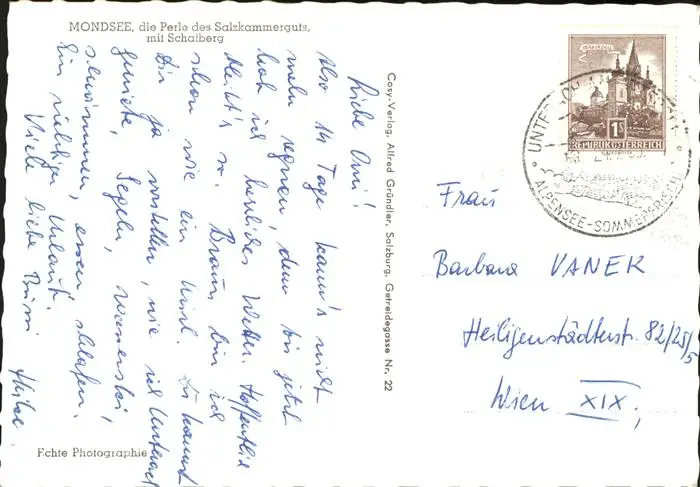 MONDSEE, die Perle des Salzkammerguts,
mit Schafberg
Liebe Omi!
Also 14 Tage kann's nicht
mehr regnen, denn bis jetzt
hab ich herrliches Wetter. Hoffentlich
bleibt's so. Braun bin ich
schon wie ein Du kannst
Dir ja vorstellen, wie ich Unterach
genieße, Segeln, Wasserski,
schwimmen, essen, schlafen.
Ein richtiger Urlaub.
Viele liebe Bussi
Cosy-Verlag, Alfred Gründler, Salzburg, Getreidegasse Nr. 22
Echte Photographie
MARIAZELL
1S
REPUBLIK ÖSTERREICH
ALPENSEE-SOMMERFRISCHE
Frau
Barbara VANEK
Heiligenstädterstr. 82/25/5
Wien XIX.